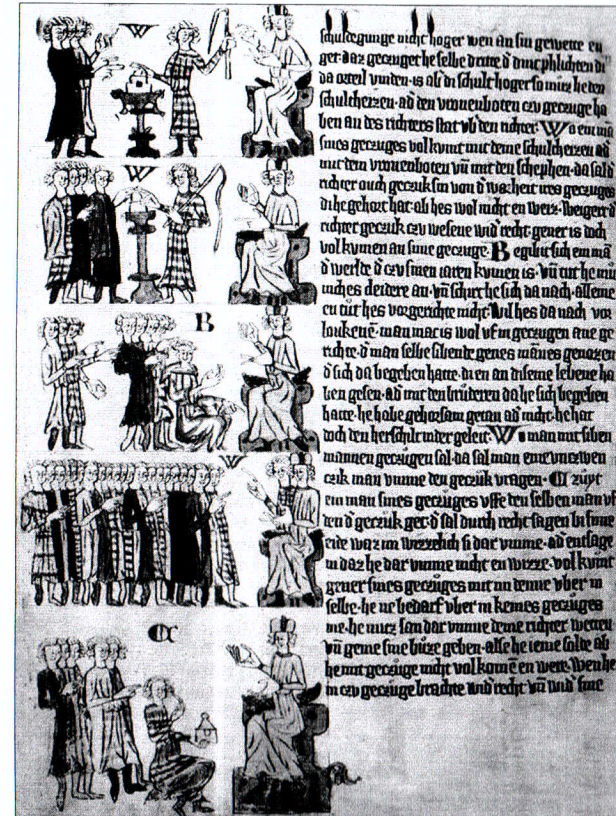 schuldegunge nicht hoger wen an sin gewette en
get· daz geczuget he selbe dritte d' dincphlichten di
da orteil vinden· is ab' di schult hoger so muz he den
schultheizen· ad' den vronenboten czv geczuge ha
ben an des richters stat vb' den richter· Wo ein mā
sines geczuges volkumt mit deme schultheizen ad'
mit dem vronenboten vn̄ mit den schephen· da sal d'
richter ouch geczuk sin von d' warheit ires geczuges
di he gehort hat· ab hes wol nicht en weiz· Weigeret d'
richter geczuk czv wesene wid' recht· gener is doch
volkumen an sime geczuge· Begibit sich ein mā
d' werlde d' czv sinen iaren kumen is· vn̄ tut he mū
niches cleidere an· vn̄ schirt he sich da nach· alleine
en tut hes vorgerichte nicht· Wil hes da nach vor
loukenē· man mac is wol vf in gezugen ane ge
richte· d' man selbe sibende genes mānes genozen
d' sich da begeben hatte· di en an diseme lebene ha
ben gesen· ad' mit den brūderen da he sich begeben
hatte· he habe gehorsam getan ad' nicht· he hat
doch den herschilt nider geleit· Wo man mit siben
mannen geczugen sal· da sal man einē vn czwen
czik man vmme den geczuk vragen· CZ züyt
ein man sines geczuges vffe den selben man vf
den d' geczuk get· d' sal durch recht sagen bi sime
eide waz im wizzelich si dar vmme· ad' entsage
in daz he dar vmme nicht en wizze· vol kumt
gener sines geczuges mit im denne vber in
selbe· he ne bedarf vber in keines geczuges
me· he muz san dar vmme deme richter wetten
vn̄ geme sine büze geben· alse he ieme solde ab
he mit geczuge nicht vol komē en were· wen he
in czv geczuge brachte wid' recht· vn̄ wid' sine
W
W
B
W
CZ